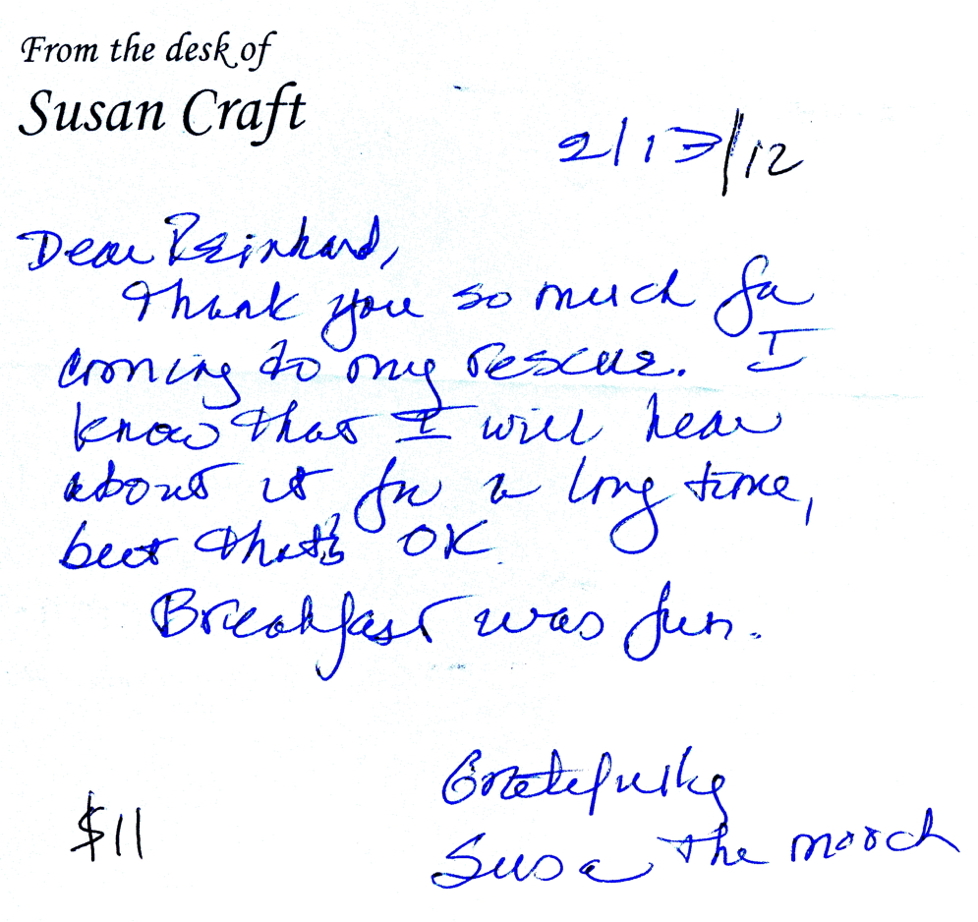 From the desk of
Susan Craft
2/13/12
Dear Reinhard,
Thank you so much for
coming to my rescue. I
know that I will hear
about it for a long time,
but that's OK.
Breakfast was fun.
Gratefully
$11
Susa the mooch